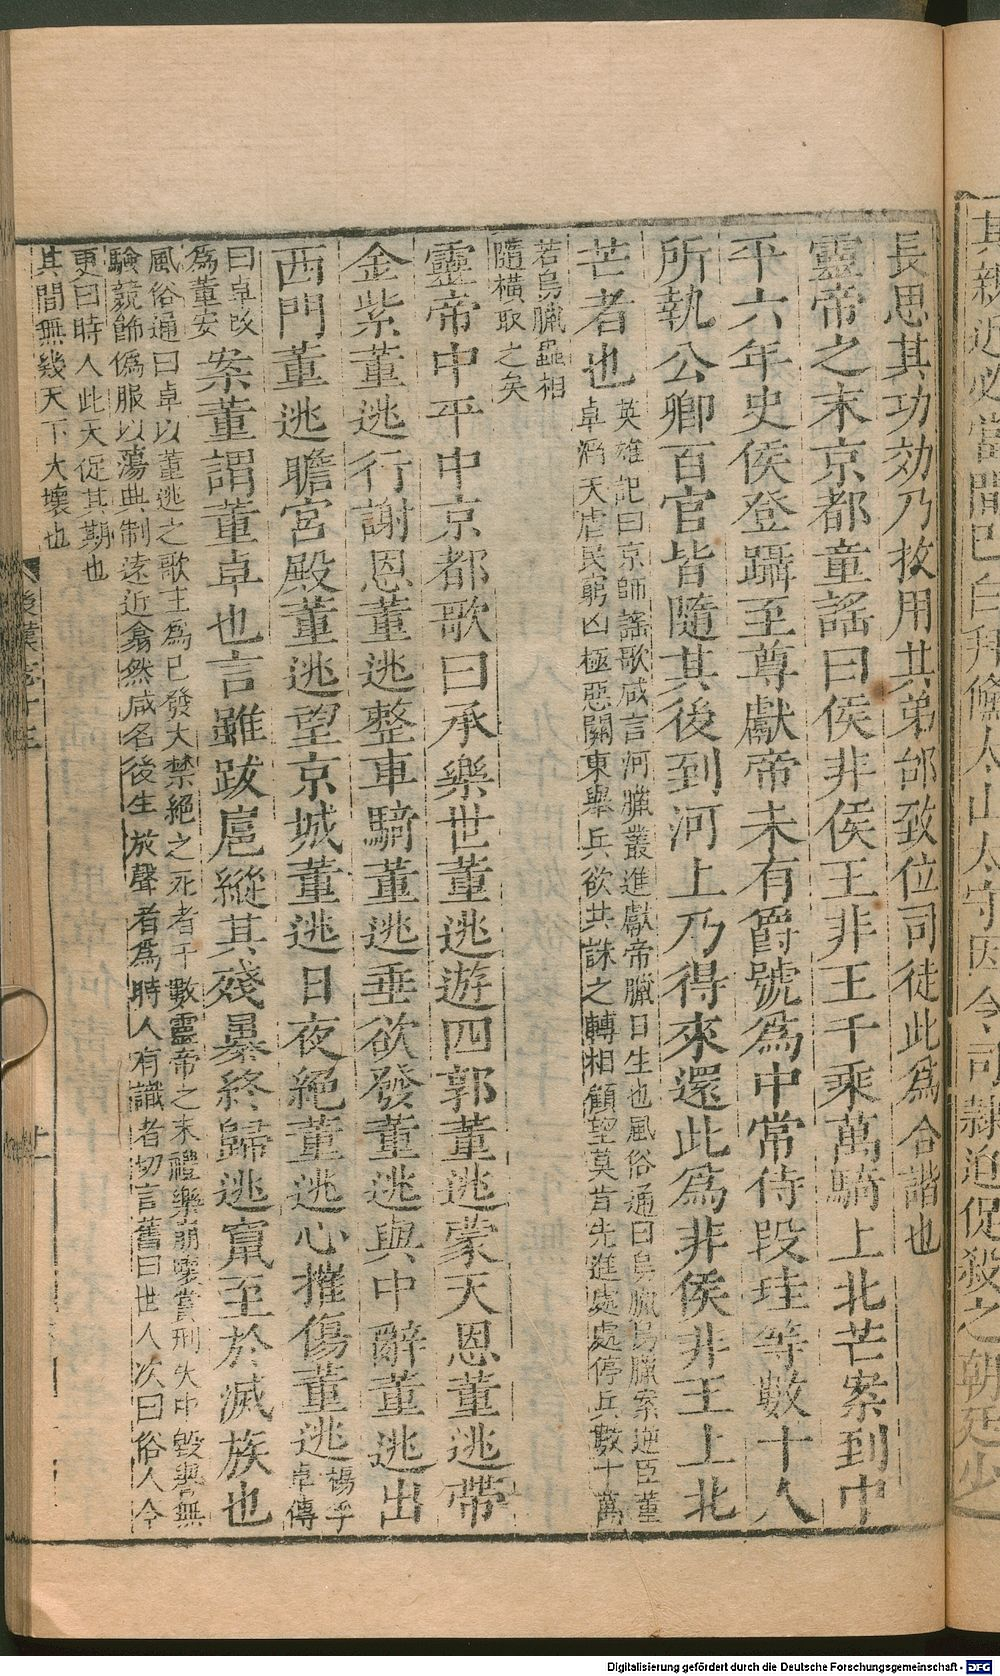 長思其功効乃拔用其弟郃致位司徒此爲合諧也
靈帝之末京都童謠曰侯非侯王非王千乘萬騎上北芒案到中
平六年史侯登躡至尊獻帝未有爵號爲中常侍段珪等數十人
所執公卿百官皆隨其後到河上乃得來還此爲非侯非王上北
芒者也
英雄記曰京師謠歌咸言河臘叢進獻帝臘日生也風俗通曰烏臘烏臘案逆臣董
卓滔天虐民窮凶極惡關東舉兵欲共誅之轉相顧望莫肯先進處處停兵數十萬
若烏臘蟲相
隨橫取之矣
靈帝中平中京都歌曰承樂世董逃遊四郭董逃蒙天恩董逃帶
金紫董逃行謝恩董逃整車騎董逃垂欲發董逃與中辭董逃出
西門董逃瞻宮殿董逃望京城董逃日夜絕董逃心摧傷董逃
楊孚
卓傳
曰卓改
爲董安
案董謂董卓也言雖跋扈縱其殘暴終歸逃竄至於滅族也
風俗通曰卓以董逃之歌主爲已發大禁絕之死者千數靈帝之末禮樂崩壞賞刑失中毀譽無
驗競飾僞服以蕩典制遠近翕然咸名後生放聲者爲時人有識者切言舊曰世人次曰俗人今
更曰時人此天促其期也
其間無幾天下大壞也
後漢志十三
其親近必當間已白拜儵太山太守因令司隸迫促殺之朝廷少
Digitalisierung gefördert durch die Deutsche Forschungsgemeinschaft - DFG